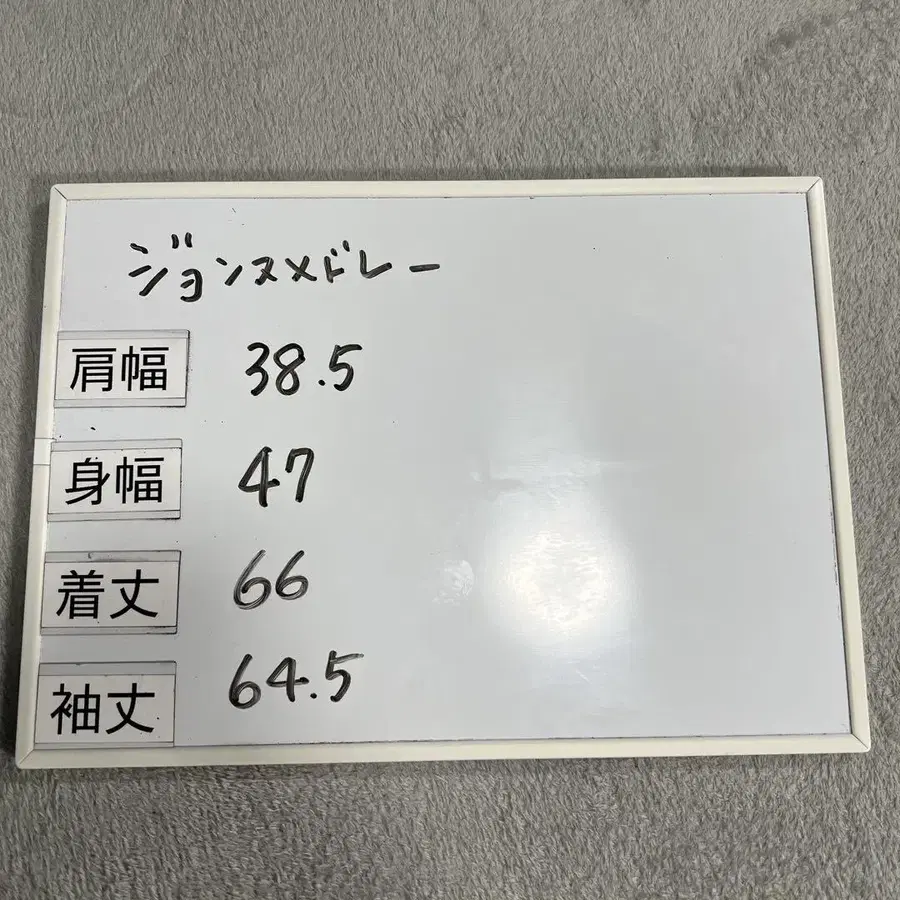 ジョンスメドレー
肩幅 38.5
身幅 47
着丈 66
袖丈 64.5